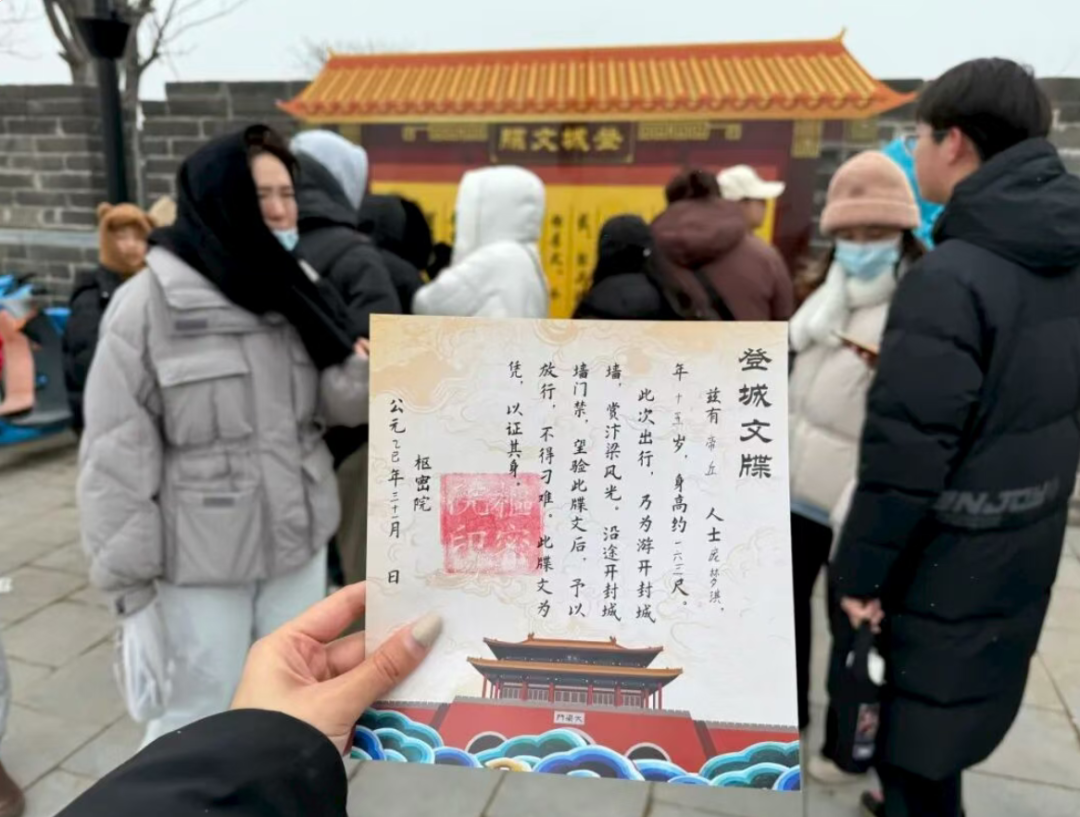 登城文牒
登城文牒
兹有 帝丘 人士
年十五岁，身高约一六三尺。
此次出行，乃为游开封城
墙，赏汴梁风光。沿途开封城
墙门禁，望验此牒文后，予以
放行，不得刁难。此牒文为
凭，以证其身。
枢密院
公元乙巳年三十一月 日
枢密院印
大梁门